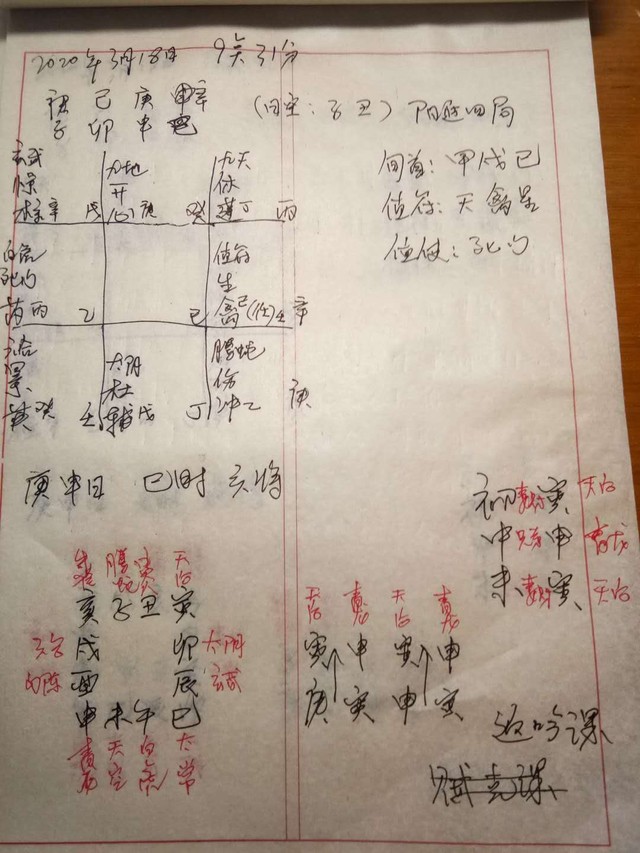 2020年3月18日 9点31分
己 庚 辛
子 卯 申 巳
(旬空:子丑) 阳遁四局
旬首:甲戌己
值符:天禽星
值使:死门
玄武
惊
柱辛 戊
九地
开
心庚 癸
九天
休
蓬丁 丙
白虎
死门
芮丙 乙
己
值符
生
禽己(任)壬 辛
六合
景
英癸 壬
太阴
杜
辅戊 丁
腾蛇
伤
冲乙 庚
庚申日 巳时 亥将
初 妻财 寅 天后
中 兄弟 申 青龙
末 妻财 寅 天后
朱雀 腾蛇 贵人 天后
亥 子 丑 寅
六合 戌 卯 太阴
勾陈 酉 辰 玄武
申 未 午 巳
青龙 天空 白虎 太常
天后 青龙 天后 青龙
寅 申 寅 申
庚 寅 申 寅
返吟课